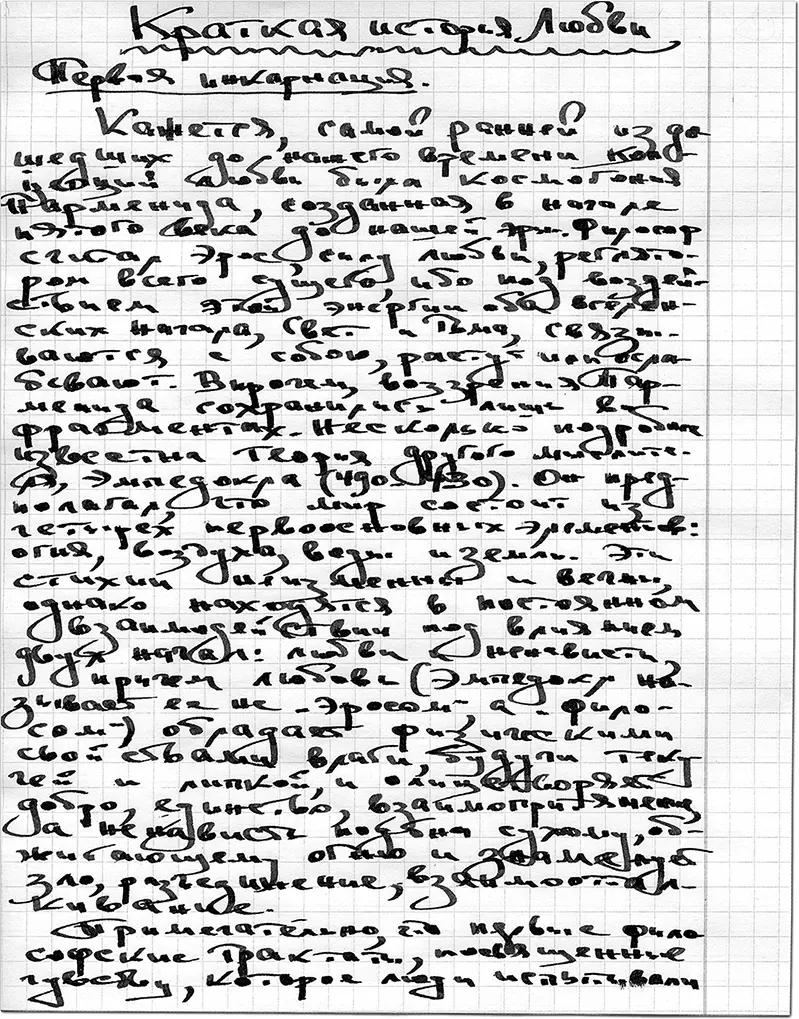 Краткая история Любви
Первая инкарнация.
Кажется, самой ранней из до-
шедших до нашего времени кон-
цепций Любви была космогония
Парменида, созданная в начале
пятого века до нашей эры. Философ
считал Эрос, силу любви, регулято-
ром всего сущего, ибо под воздей-
ствием этой энергии оба вселен-
ских начала, Свет и Тьма, связы-
ваются с собою, растут или осла-
бевают. Впрочем, воззрения Пар-
менида сохранились лишь в
фрагментах. Несколько подробнее
известна теория другого мыслите-
ля, Эмпедокла (490-430). Он пред-
полагал, что мир состоит из
четырех первоосновных элементов:
огня, воздуха, воды и земли. Эти
стихии неизменны и вечны,
однако находятся в постоянном
взаимодействии под влиянием
двух начал: любви и ненависти,
причем любовь (Эмпедокл на-
зывает ее не „Эросом“, а „фило-
сом“) обладает физическими
свойствами влаги, будучи теку-
чей и липкой, и олицетворяет
добро, единство, взаимопритяжение,
а ненависть подобна сухому, об-
жигающему огню и знаменует
зло, разъединение, взаимоотталки-
вание.
Примечательно, что первые фило-
софские трактаты, посвященные
чувству, которое люди испытывали